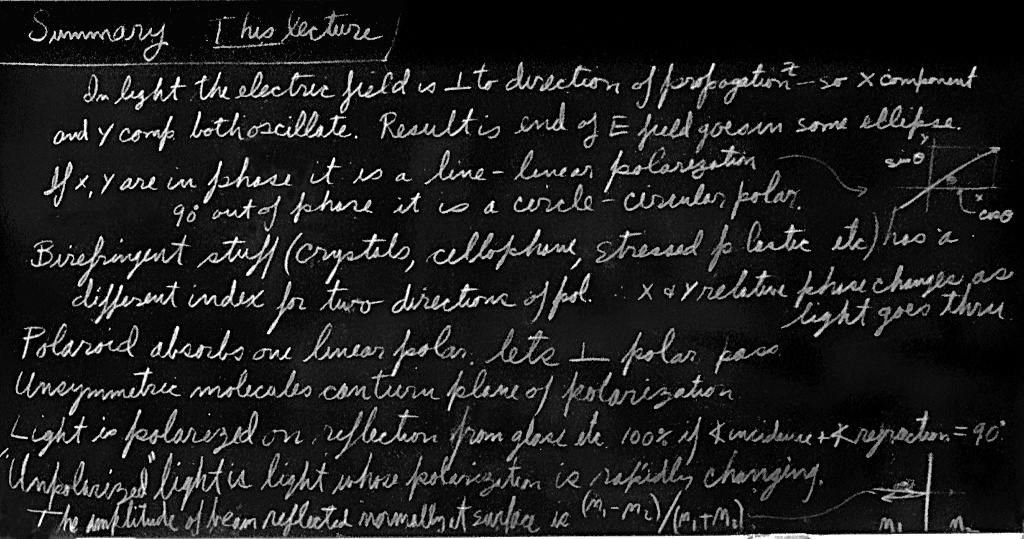 Summary This lecture
In light the electric field is ⊥ to direction of propagation z – so x component
and y comp. both oscillate. Result is end of E field goes in some ellipse.
If x, y are in phase it is a line – linear polarization
90° out of phase it is a circle – circular polar.
y
sin θ
θ
x
cos θ
Birefringent stuff (crystals, cellophane, stressed plastic etc) has a
different index for two directions of pol. ∴ x & y relative phase changes as
light goes thru.
Polaroid absorbs one linear polar. lets ⊥ polar. pass
Unsymmetric molecules can turn plane of polarization
Light is polarized on reflection from glass etc. 100% if ∢ incidence + ∢ refraction = 90°
"Unpolarized" light is light whose polarization is rapidly changing.
The amplitude of beam reflected normally at surface is (n₁ – n₂)/(n₁ + n₂)
n₁ n₂